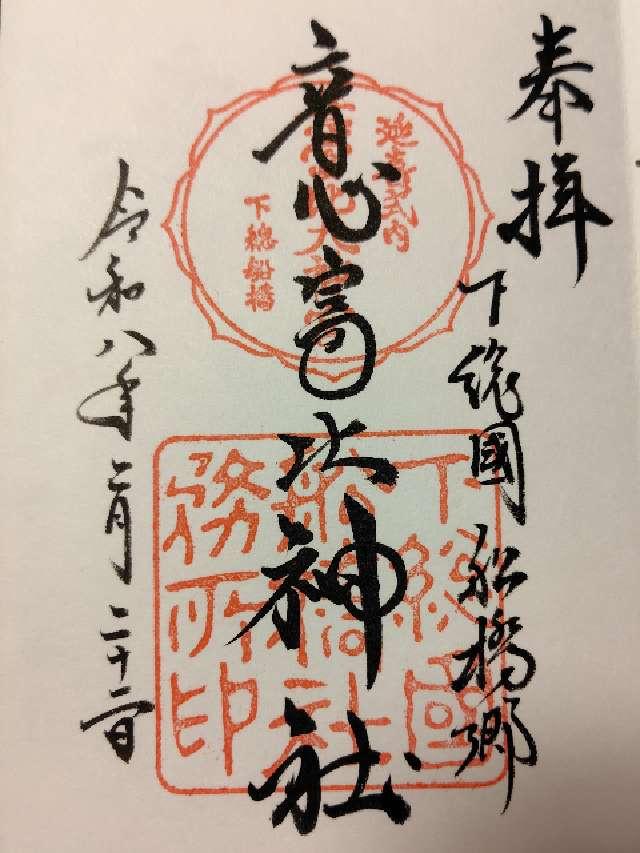 奉拝
下総國船橋郷
意富比神社
令和八年二月二十二日
延喜式内
意富比大神宮
下総船橋
下総國
船橋社
務所印